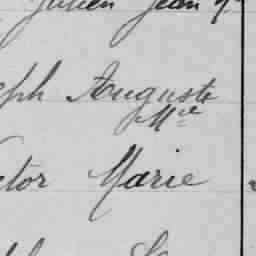 Julien Jean
eph Auguste
Mie
ctor Marie